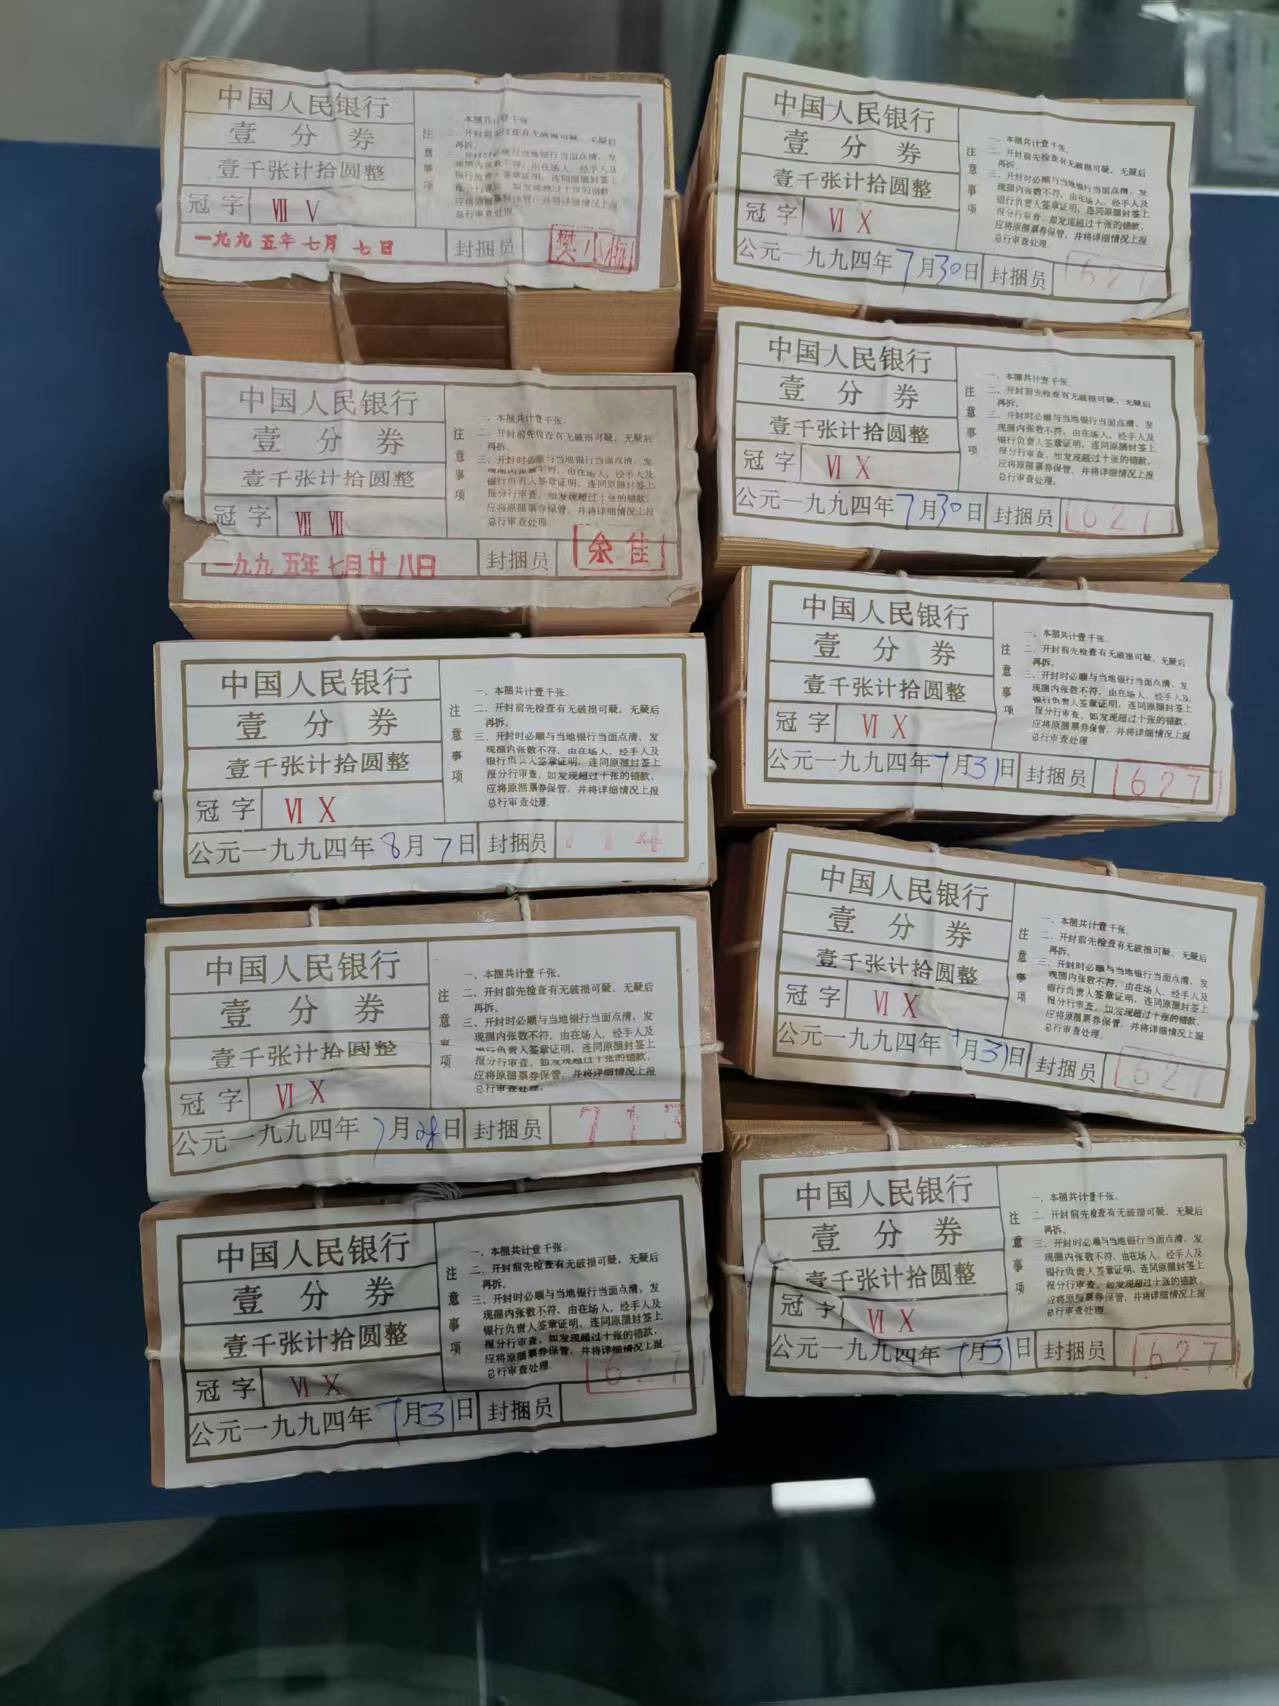 中国人民银行
壹分券
壹千张计拾圆整
冠字 Ⅶ Ⅴ
一九九五年七月七日 封捆员 樊小梅
注意事项
再拆。
总行审查处理。
中国人民银行
壹分券
壹千张计拾圆整
冠字 Ⅶ Ⅶ
一九九五年七月廿八日 封捆员 余佳
注意事项
一、本捆共计壹千张。
二、开封前先检查有无破损可疑，无疑后
再拆。
三、开封时必顺与当地银行当面点清，发
现捆内张数不符，由在场人，经手人及
银行负责人签章证明，连同原捆封签上
报分行审查。如发现超过十张的错款，
应将原捆票券保管，并将详细情况上报
总行审查处理。
中国人民银行
壹分券
壹千张计拾圆整
冠字 Ⅵ Ⅹ
公元一九九四年8月7日 封捆员
注意事项
一、本捆共计壹千张。
二、开封前先检查有无破损可疑，无疑后
再拆。
三、开封时必顺与当地银行当面点清，发
现捆内张数不符，由在场人，经手人及
银行负责人签章证明，连同原捆封签上
报分行审查。如发现超过十张的错款，
应将原捆票券保管，并将详细情况上报
总行审查处理。
中国人民银行
壹分券
壹千张计拾圆整
冠字 Ⅵ Ⅹ
公元一九九四年7月28日 封捆员 713
注意事项
一、本捆共计壹千张。
二、开封前先检查有无破损可疑，无疑后
再拆。
三、开封时必顺与当地银行当面点清，发
现捆内张数不符，由在场人，经手人及
银行负责人签章证明，连同原捆封签上
报分行审查。如发现超过十张的错款，
应将原捆票券保管，并将详细情况上报
总行审查处理。
中国人民银行
壹分券
壹千张计拾圆整
冠字 Ⅵ Ⅹ
公元一九九四年7月31日 封捆员 627
注意事项
一、本捆共计壹千张。
二、开封前先检查有无破损可疑，无疑后
再拆。
三、开封时必顺与当地银行当面点清，发
现捆内张数不符，由在场人，经手人及
银行负责人签章证明，连同原捆封签上
报分行审查。如发现超过十张的错款，
应将原捆票券保管，并将详细情况上报
总行审查处理。
中国人民银行
壹分券
壹千张计拾圆整
冠字 Ⅵ Ⅹ
公元一九九四年7月30日 封捆员 627
注意事项
一、本捆共计壹千张。
二、开封前先检查有无破损可疑，无疑后
再拆。
三、开封时必顺与当地银行当面点清，发
现捆内张数不符，由在场人，经手人及
银行负责人签章证明，连同原捆封签上
报分行审查。如发现超过十张的错款，
应将原捆票券保管，并将详细情况上报
总行审查处理。
中国人民银行
壹分券
壹千张计拾圆整
冠字 Ⅵ Ⅹ
公元一九九四年7月30日 封捆员 627
注意事项
一、本捆共计壹千张。
二、开封前先检查有无破损可疑，无疑后
再拆。
三、开封时必顺与当地银行当面点清，发
现捆内张数不符，由在场人，经手人及
银行负责人签章证明，连同原捆封签上
报分行审查。如发现超过十张的错款，
应将原捆票券保管，并将详细情况上报
总行审查处理。
中国人民银行
壹分券
壹千张计拾圆整
冠字 Ⅵ Ⅹ
公元一九九四年7月31日 封捆员 627
注意事项
一、本捆共计壹千张。
二、开封前先检查有无破损可疑，无疑后
再拆。
三、开封时必顺与当地银行当面点清，发
现捆内张数不符，由在场人，经手人及
银行负责人签章证明，连同原捆封签上
报分行审查。如发现超过十张的错款，
应将原捆票券保管，并将详细情况上报
总行审查处理
中国人民银行
壹分券
壹千张计拾圆整
冠字 Ⅵ Ⅹ
公元一九九四年7月31日 封捆员 627
注意事项
一、本捆共计壹千张。
二、开封前先检查有无破损可疑，无疑后
再拆。
三、开封时必顺与当地银行当面点清，发
现捆内张数不符，由在场人，经手人及
银行负责人签章证明，连同原捆封签上
报分行审查。如发现超过十张的错款，
应将原捆票券保管，并将详细情况上报
总行审查处理。
中国人民银行
壹分券
壹千张计拾圆整
冠字 Ⅵ Ⅹ
公元一九九四年7月31日 封捆员 627
注意事项
一、本捆共计壹千张。
二、开封前先检查有无破损可疑，无疑后
再拆。
三、开封时必顺与当地银行当面点清，发
现捆内张数不符，由在场人，经手人及
银行负责人签章证明，连同原捆封签上
报分行审查。如发现超过十张的错款，
应将原捆票券保管，并将详细情况上报
总行审查处理。